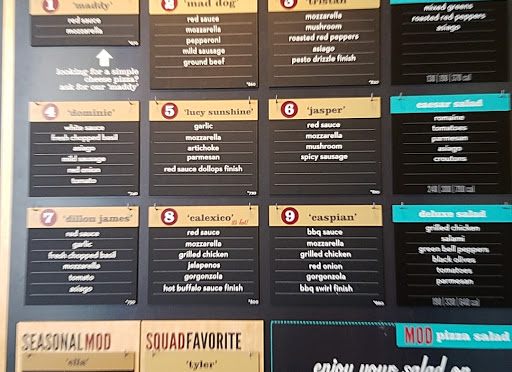 1 'maddy'
red sauce
mozzarella
looking for a simple
cheese pizza?
ask for our 'maddy'
2 'mad dog'
red sauce
mozzarella
pepperoni
mild sausage
ground beef
3 'tristan'
mozzarella
mushroom
roasted red peppers
asiago
pesto drizzle finish
mixed greens
roasted red peppers
asiago
130 | 190 | 370 cal
4 'dominic'
white sauce
fresh chopped basil
asiago
mild sausage
red onion
tomato
5 'lucy sunshine'
garlic
mozzarella
artichoke
parmesan
red sauce dollops finish
6 'jasper'
red sauce
mozzarella
mushroom
spicy sausage
caesar salad
romaine
tomatoes
parmesan
asiago
croutons
240 | 380 | 780 cal
7 'dillon james'
red sauce
garlic
fresh chopped basil
mozzarella
tomato
asiago
8 'calexico' it's hot!
red sauce
mozzarella
grilled chicken
jalapenos
gorgonzola
hot buffalo sauce finish
9 'caspian'
bbq sauce
mozzarella
grilled chicken
red onion
gorgonzola
bbq swirl finish
deluxe salad
grilled chicken
salami
green bell peppers
black olives
tomatoes
parmesan
SEASONALMOD
'ella'
SQUADFAVORITE
'tyler'
MOD pizza salad
enjoy your salad on